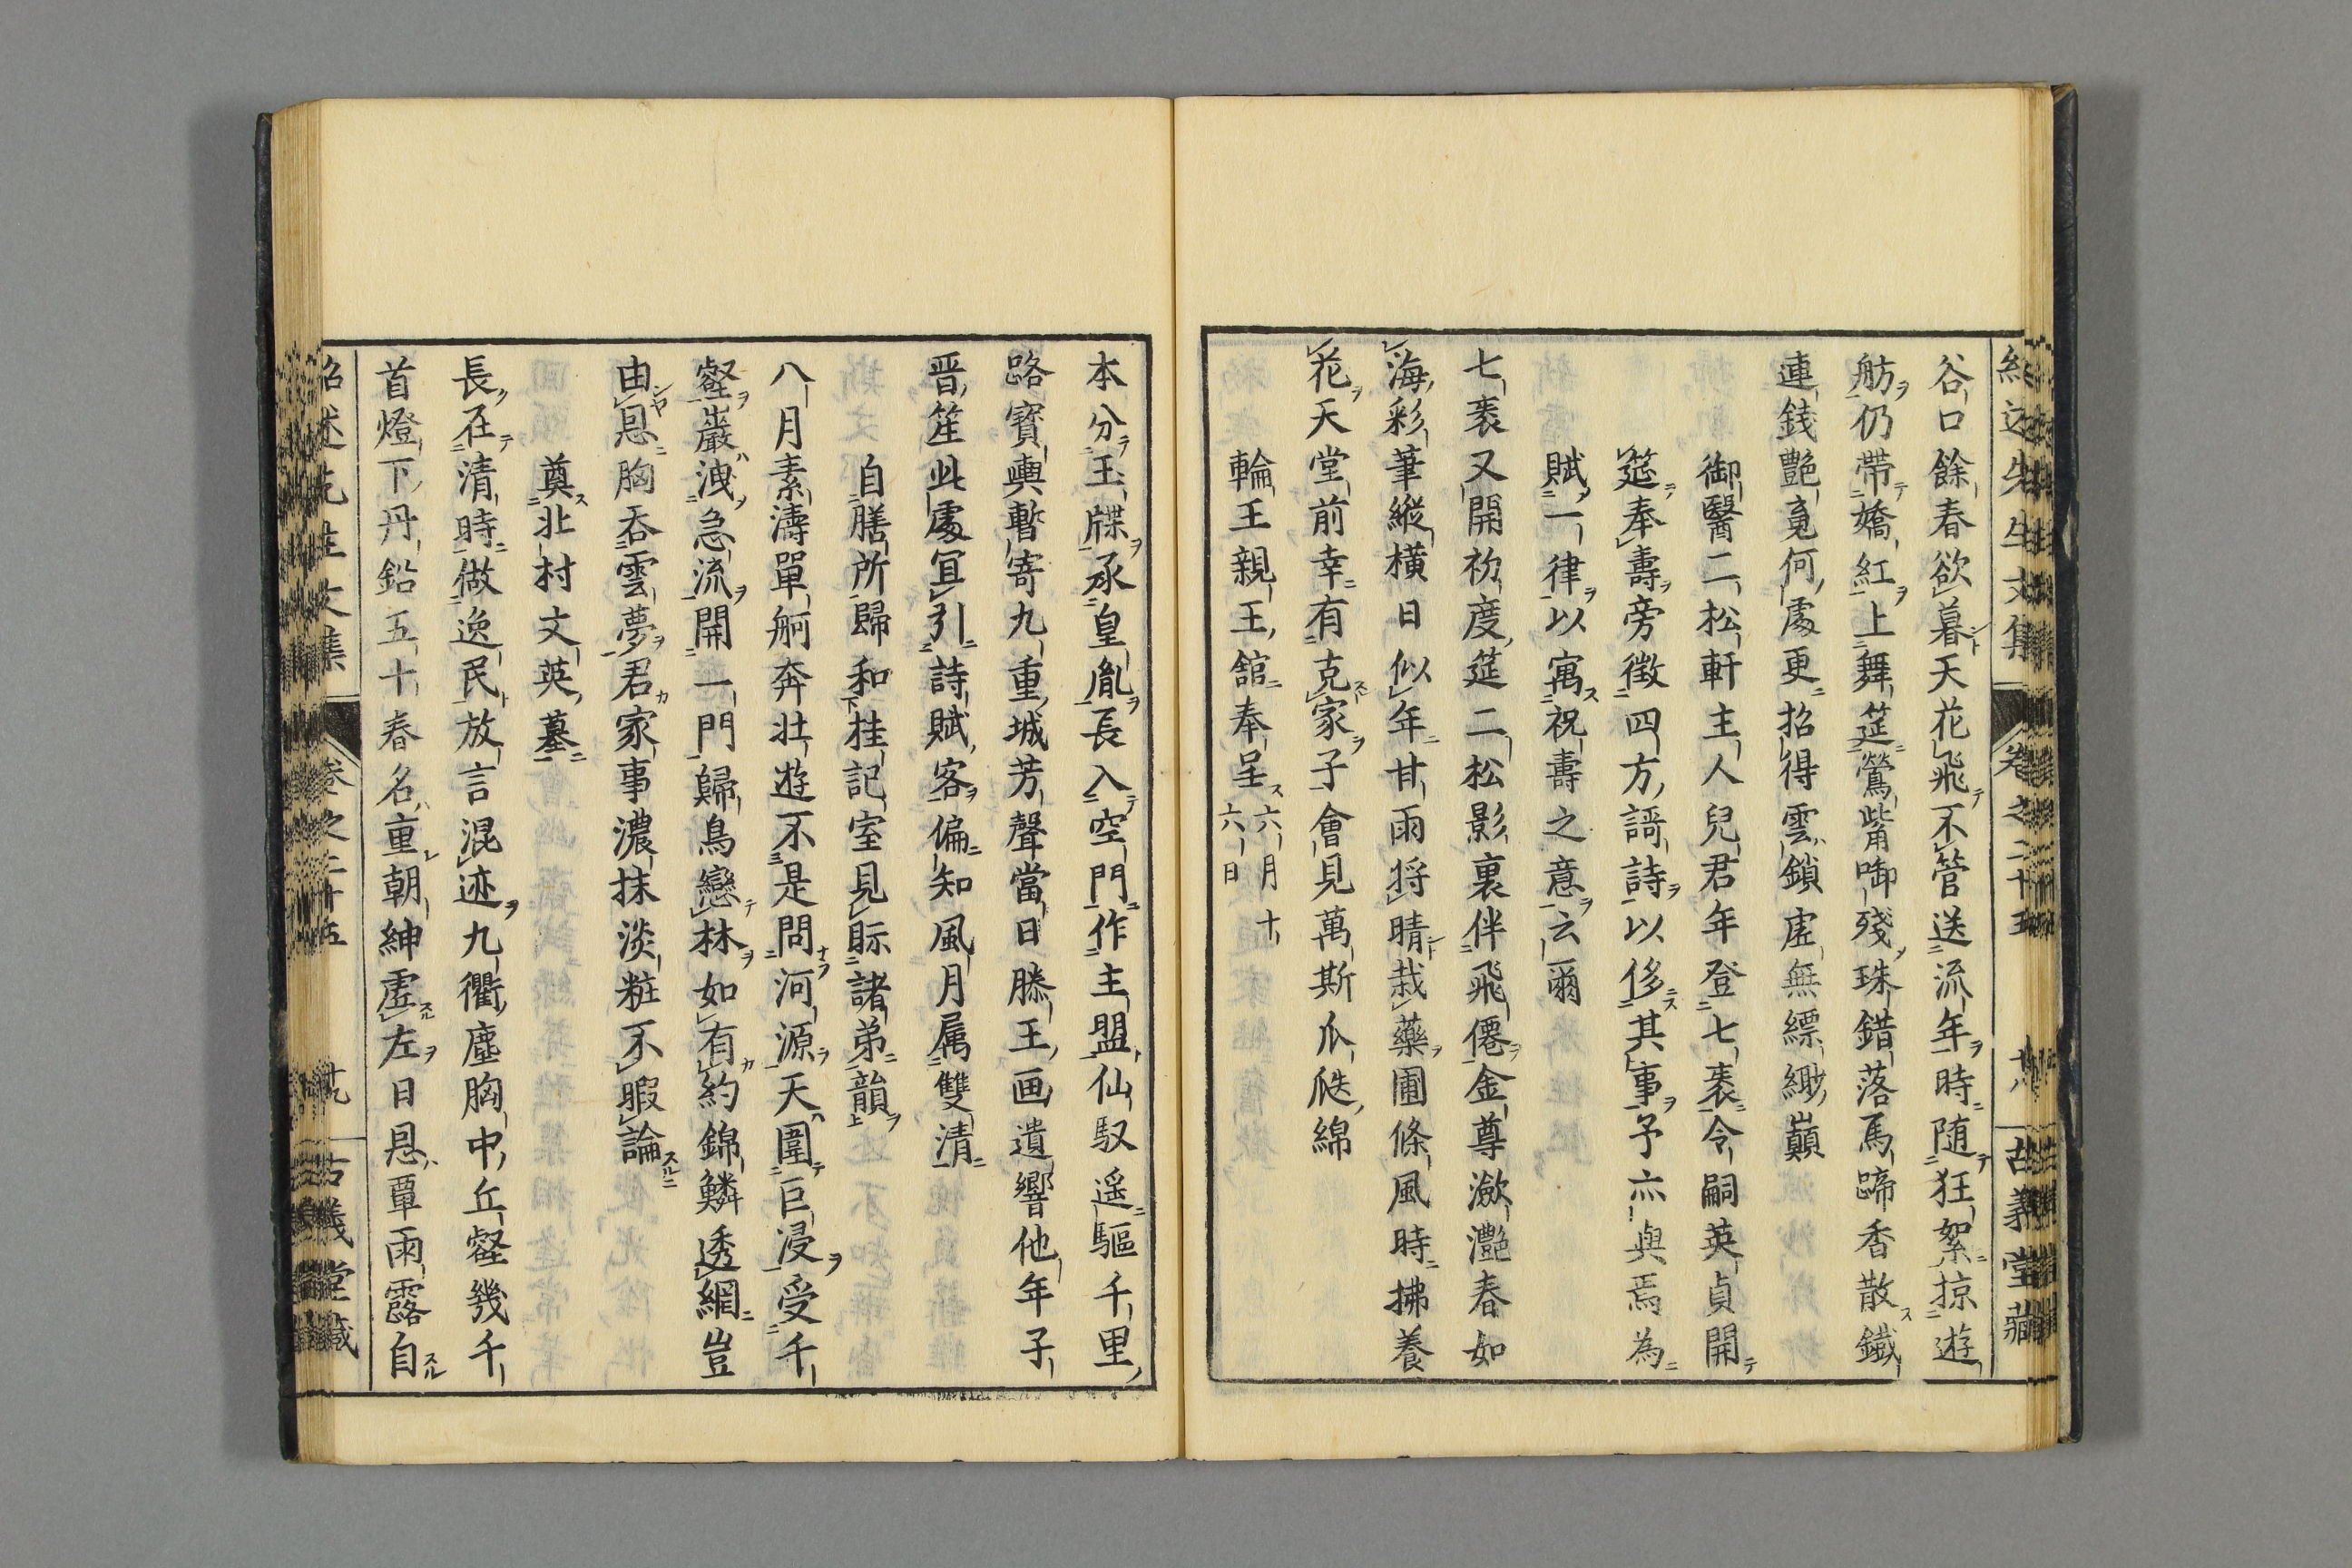 谷口餘春欲暮天花飛不管送流年時随狂絮掠遊
舫仍帶嬌紅上舞筵鶯觜啣殘珠錯落馬蹄香散鐵
連錢艷竟何處更招得雲鎖虛無縹緲巔
御醫二松軒主人兒君年登七袠令嗣英貞開
筵奉壽旁徵四方謌詩以侈其事予亦與焉為
賦一律以寓祝壽之意云爾
七袠又開初度筵二松影裏伴飛僊金尊瀲灔春如
海彩筆縱橫日似年甘雨将晴栽藥圃條風時拂養
花天堂前幸有克家子會見萬斯瓜瓞綿
輪王親王舘奉呈六月十六日
本分玉牒承皇胤長入空門作主盟仙馭遥驅千里
路寶輿暫寄九重城芳聲當日滕王画遺響他年子
晋笙此處冝引詩賦客偏知風月属雙清
自膳所歸和桂記室見眎諸弟韻
八月素濤單舸奔壯遊不是問河源天圍巨浸受千
壑巖洩急流開一門歸鳥戀林如有約錦鱗透網豈
由恩胸吞雲夢君家事濃抹淡粧不暇論
奠北村文英墓
長在清時做逸民放言混迹九衢塵胸中丘壑幾千
首燈下丹鉛五十春名重朝紳虛左日恩覃雨露自
紹述先生文集
卷之二十五
十八
古義堂藏
紹述先生文集
卷之二十五
十九
古義堂藏